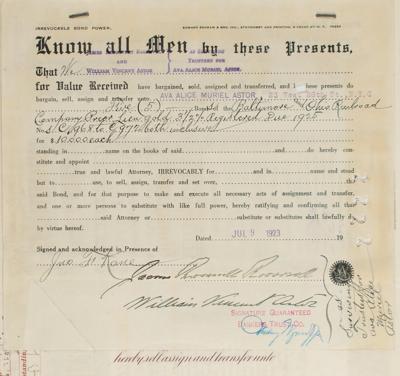 IRREVOCABLE BOND POWER.
Know all Men by these Presents,
JAMES ROOSEVELT ROOSEVELT
AS
That We
and
WILLIAM VINCENT ASTOR
Trustees for
AVA ALICE MURIEL ASTOR,
for Value Received have bargained, sold, assigned and transferred, and by these presents do
AVA ALICE MURIEL ASTOR 23 West 26th St. N.Y.C
bargain, sell, assign and transfer unto
Five (5) Bonds of the Baltimore & Ohio Railroad
Company Prior Lien Gold 3½% Registered Due 1925
No. C1968 to C1972 both inclusive
for $10000 each
standing in name on the books of said and do hereby con-
stitute and appoint
true and lawful Attorney, IRREVOCABLY for and in name and stead
but to use, to sell, assign, transfer and set over,
said Bond, and for that purpose to make and execute all necessary acts of assignment and transfer,
and one or more persons to substitute with like full power, hereby ratifying and confirming all that
said Attorney or substitute or substitutes shall lawfully do
by virtue hereof.
Dated JUL 9 1923 19
Signed and acknowledged in Presence of
James Roosevelt Roosevelt
William Vincent Astor
SIGNATURE GUARANTEED
BANKERS TRUST CO.
hereby sell assign and transfer unto